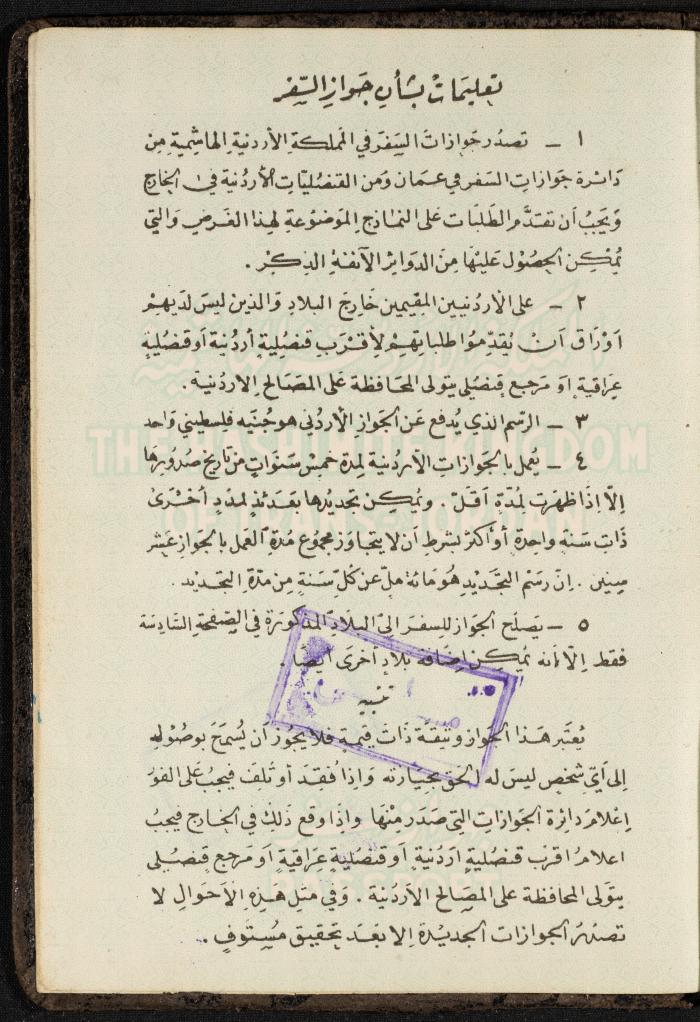 تعليمات بشأن جواز السفر
١ - تصدر جوازات السفر في المملكة الأردنية الهاشمية من
دائرة جوازات السفر في عمان ومن القنصليات الأردنية في الخارج
ويجب أن تقدم الطلبات على النماذج الموضوعة لهذا الغرض والتي
يمكن الحصول عليها من الدوائر الآنفة الذكر .
٢ - على الأردنيين المقيمين خارج البلاد والذين ليس لديهم
أوراق أن يقدموا طلباتهم لأقرب قنصلية أردنية أو قنصلية
عراقية أو مرجع قنصلي يتولى المحافظة على المصالح الاردنية .
THE HASHIMITE KINGDOM
٣ - الرسم الذي يدفع عن الجواز الأردني هو جنيه فلسطيني واحد
٤ - يعمل بالجوازات الأردنية لمدة خمس سنوات من تاريخ صدورها
إلا إذا ظهرت لمدة أقل . ويمكن تجديدها بعدئذ لمدد أخرى
OF TRANS-JORDAN
ذات سنة واحدة أو أكثر بشرط أن لا يتجاوز مجموع مدة العمل بالجواز عشر
سنين . ان رسم التجديد هو مائة مل عن كل سنة من مدة التجديد .
٥ - يصلح الجواز للسفر الى البلاد المذكورة في الصفحة السادسة
فقط إلا أنه يمكن إضافة بلاد أخرى أيضا .
تنبيه
يعتبر هذا الجواز وثيقة ذات قيمة فلا يجوز أن يسمح بوصوله
إلى أي شخص ليس له الحق بحيازته وإذا فقد أو تلف فيجب على الفور
إعلام دائرة الجوازات التي صدر منها وإذا وقع ذلك في الخارج فيجب
اعلام اقرب قنصلية أردنية أو قنصلية عراقية أو مرجع قنصلي
PASSPORT
يتولى المحافظة على المصالح الأردنية . وفي مثل هذه الأحوال لا
تصدر الجوازات الجديدة إلا بعد تحقيق مستوف .